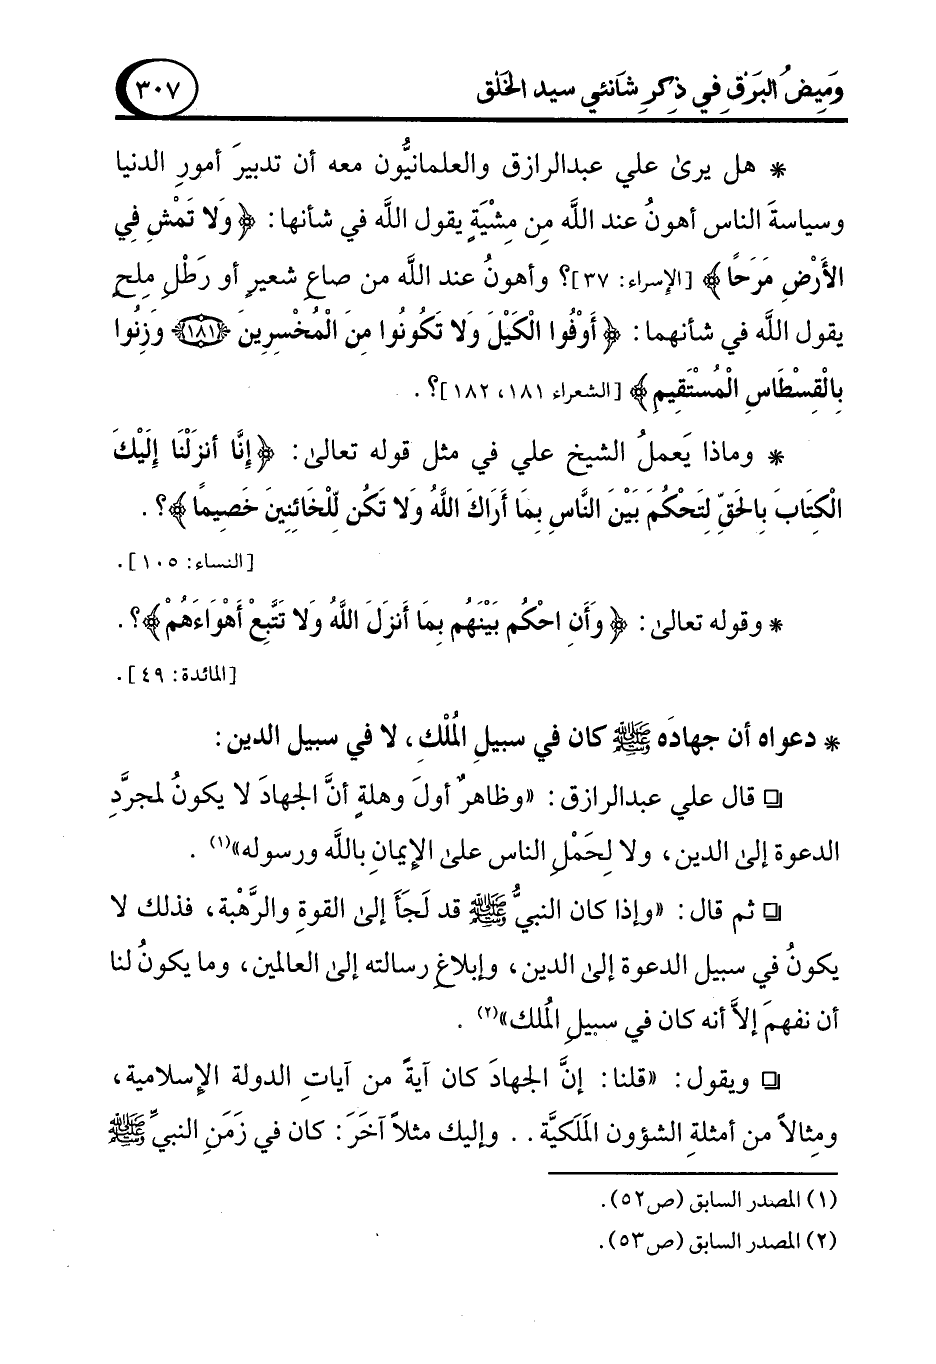 وَمِيضُ البَرْقِ في ذِكرِ شَانئي سيد الخَلْق ٣٠٧
* هل يرىٰ علي عبدالرازق والعلمانيُّون معه أن تدبيرَ أمورِ الدنيا
وسياسةَ الناس أهونُ عند اللَّه مِن مِشْيَةٍ يقول اللَّه في شأنها: ﴿وَلا تَمْشِ فِي
الأَرْضِ مَرَحًا﴾ [الإسراء: ٣٧]؟ وأهونُ عند اللَّه من صاعِ شعيرٍ أو رَطْلِ ملحٍ
يقول اللَّه في شأنهما: ﴿أَوْفُوا الْكَيْلَ وَلا تَكُونُوا مِنَ الْمُخْسِرِينَ (١٨١) وَزِنُوا
بِالْقِسْطَاسِ الْمُسْتَقِيمِ﴾ [الشعراء ١٨١، ١٨٢]؟ .
* وماذا يَعملُ الشيخ علي في مثل قوله تعالىٰ: ﴿إِنَّا أَنزَلْنَا إِلَيْكَ
الْكِتَابَ بِالحَقِّ لِتَحْكُمَ بَيْنَ النَّاسِ بِمَا أَرَاكَ اللَّهُ وَلا تَكُن لِّلْخَائِنِينَ خَصِيمًا﴾؟ .
[النساء: ١٠٥] .
* وقوله تعالىٰ: ﴿وَأَنِ احْكُم بَيْنَهُم بِمَا أَنزَلَ اللَّهُ وَلا تَتَّبِعْ أَهْوَاءَهُمْ﴾؟ .
[المائدة: ٤٩] .
* دعواه أن جهادَه ﷺ كان في سبيلِ المُلْكِ، لا في سبيل الدين:
❏ قال علي عبدالرازق: «وظاهرٌ أولَ وهلةٍ أنَّ الجهادَ لا يكونُ لمجرَّدِ
الدعوة إلىٰ الدين، ولا لِحَمْلِ الناس علىٰ الإيمانِ باللَّه ورسوله»(١) .
❏ ثم قال: «وإذا كان النبيُّ ﷺ قد لَجَأَ إلىٰ القوةِ والرَّهْبة، فذلك لا
يكونُ في سبيل الدعوة إلىٰ الدين، وإبلاغِ رسالته إلىٰ العالمين، وما يكونُ لنا
أن نفهمَ إلاَّ أنه كان في سبيلِ المُلك»(٢) .
❏ ويقول: «قلنا: إنَّ الجهادَ كان آيةً من آياتِ الدولة الإسلامية،
ومِثالاً من أمثلةِ الشؤون المَلَكيَّة . . وإليك مثلاً آخَرَ: كان في زَمَنِ النبيِّ ﷺ
(١) المصدر السابق (ص٥٢).
(٢) المصدر السابق (ص٥٣).